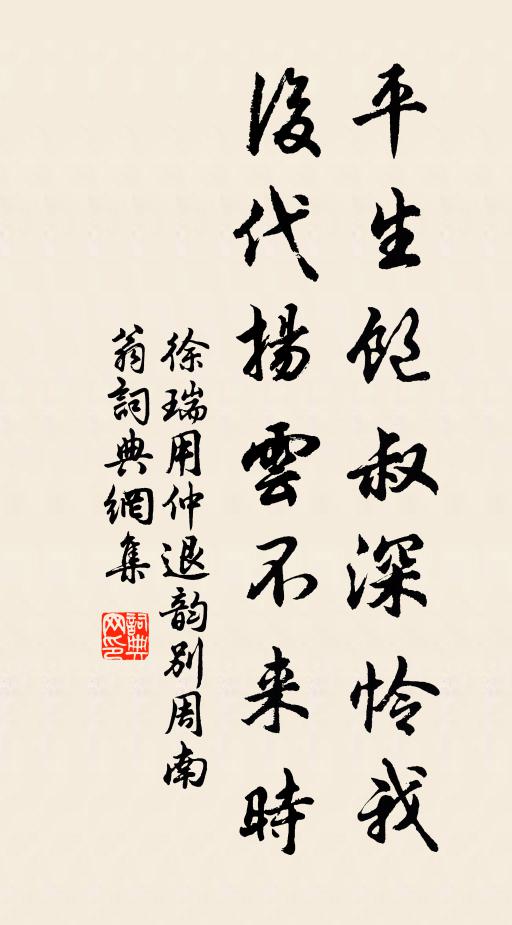 平生飽叔深怜我
後代揚雲不来時
徐瑞用仲退韵别周南
翁詞典網集
詞典
网印